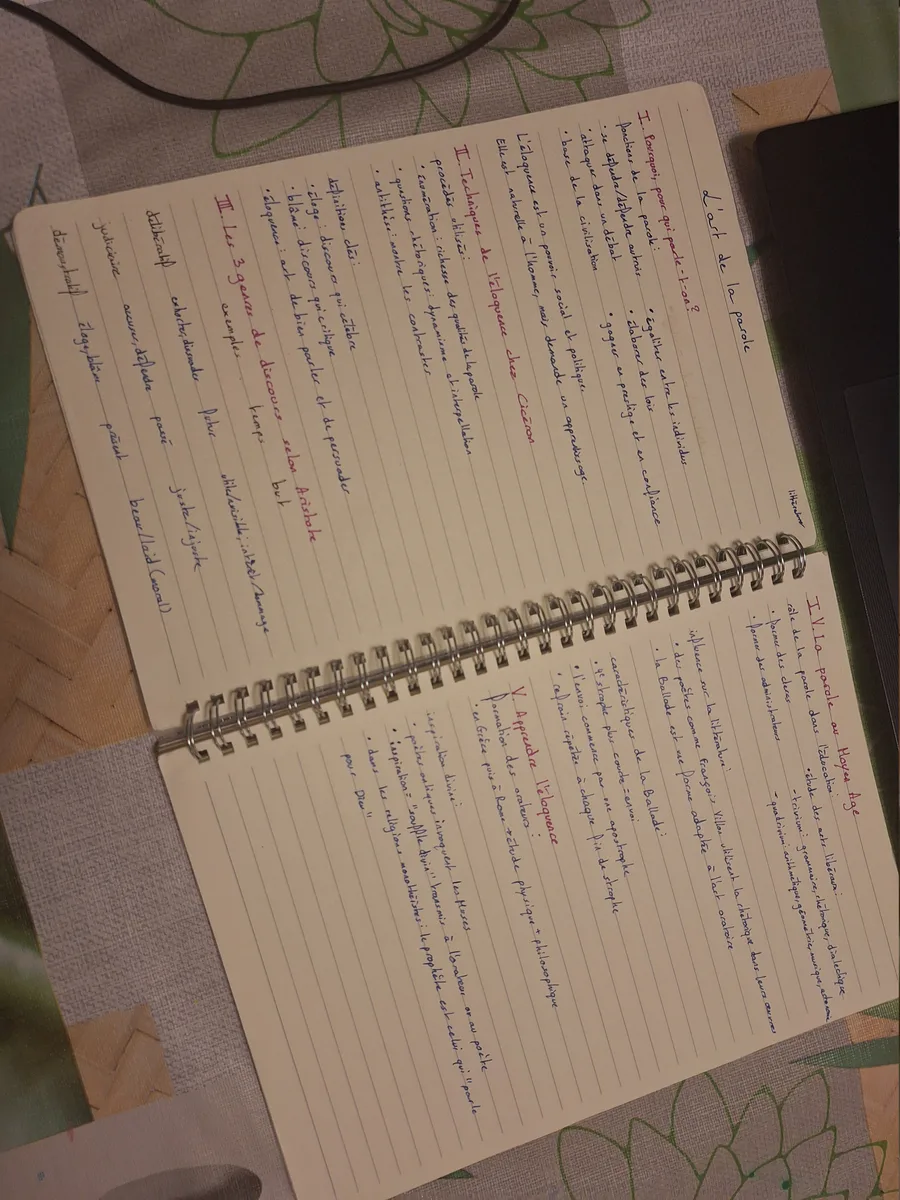 littérature
L'art de la parole
I. Pourquoi, pour qui parle-t-on?
fonctions de la parole:
• se défendre/défendre autrui
• attaquer dans un débat
• base de la civilisation
• égaliter entre les individus
• élaborer des lois
• gagner en prestige et en confiance
L'éloquence est un pouvoir social et politique.
Elle est naturelle à l'homme, mais demande un apprentissage.
II. Techniques de l'éloquence chez Cicéron
procédés utilisés:
• énumération: richesse des qualités de la parole
• questions rhétoriques: dynamisme et interpellation
• antithèse: montre les contrastes
définitions clés:
• éloge: discours qui célèbre
• blâme: discours qui critique
• éloquence: art de bien parler et de persuader
III. Les 3 genres de discours selon Aristote
exemples temps but
délibératif exhorter, dissuader futur utile/nuisible, intérêt/dommage
judiciaire accuser, défendre passé juste/injuste
démonstratif éloge, blâme présent beau/laid (moral)
IV. La parole au Moyen Age
rôle de la parole dans l'éducation:
• former des clercs
• former des administrateurs
• étude des arts libéraux:
- trivium: grammaire, rhétorique, dialectique
- quadrivium: arithmétique, géométrie, musique,
influence sur la littérature:
• des poètes comme François Villon utilisent la rhétorique dans leurs œuvres
• la Ballade est une forme adaptée à l'art oratoire
caractéristiques de la Ballade:
• 4e strophe plus courte = envoi
• l'envoi commence par une apostrophe
• refrain répétée à chaque fin de strophe
V. Apprendre l'éloquence
formation des orateurs:
• en Grèce puis à Rome → étude physique + philosophique
inspiration divine:
• poètes antiques invoquent les Muses
• inspiration = "souffle divin" transmis à l'orateur ou au poète
• dans les religions monothéistes: le prophète est celui qui "parle
pour Dieu"